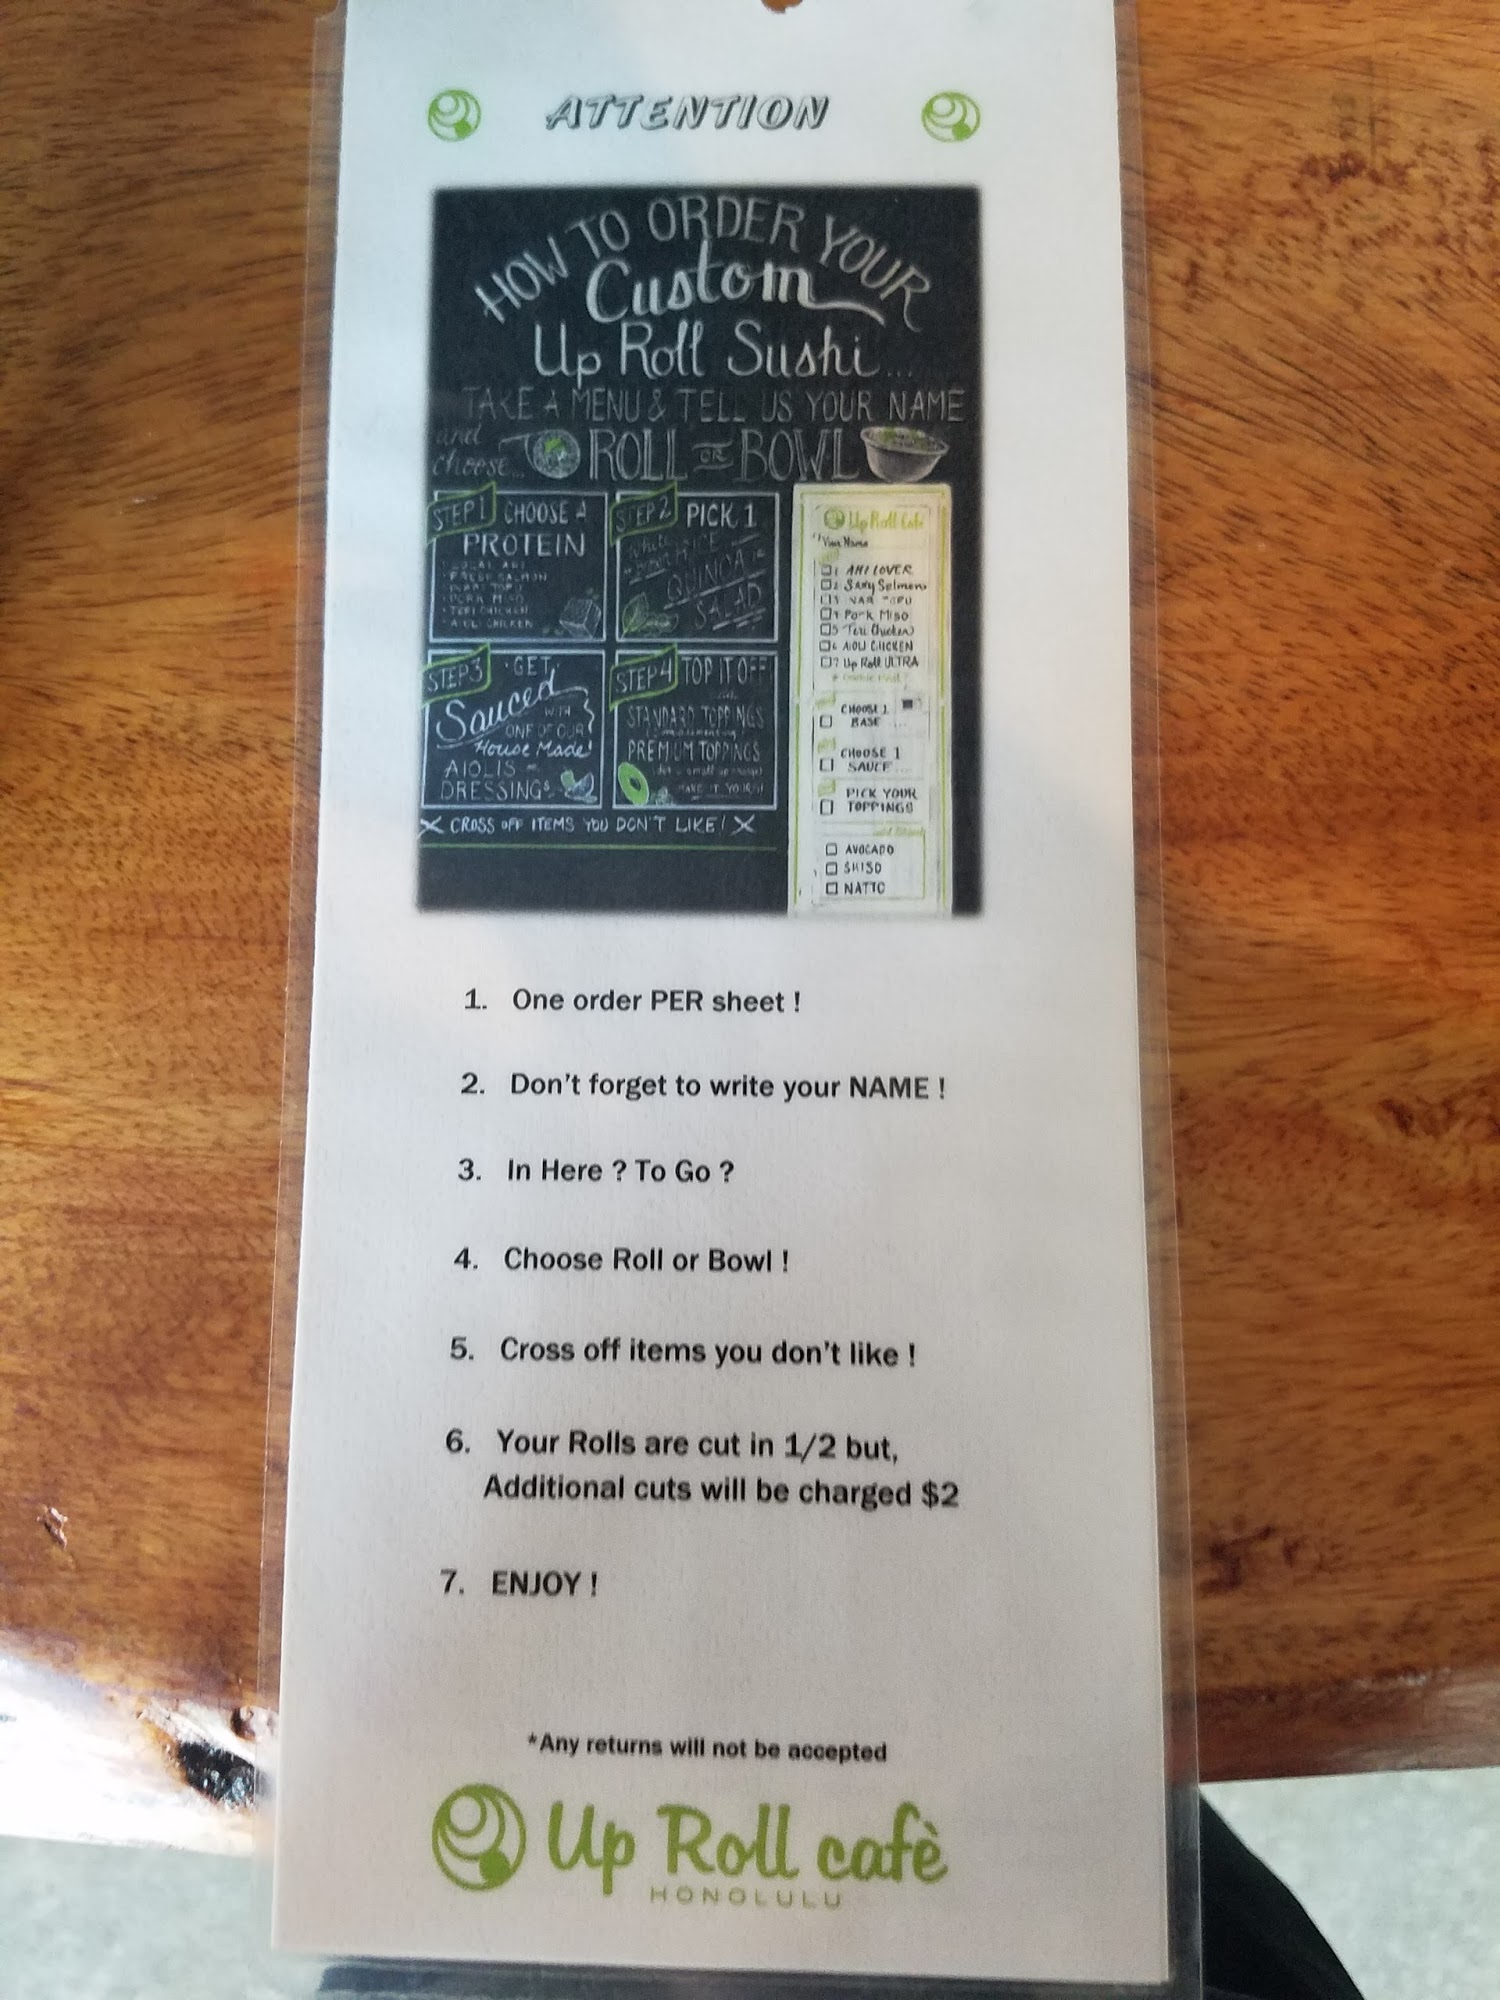 ATTENTION
HOW TO ORDER YOUR
Custom
Up Roll Sushi...
TAKE A MENU & TELL US YOUR NAME
and
choose...
ROLL OR BOWL
STEP 1 CHOOSE A
PROTEIN
FRESH SALMON
PORK MISO
TERI CHICKEN
AIOLI CHICKEN
STEP 2 PICK 1
White
RICE
QUINOA
SALAD
STEP 3 GET
Sauced WITH
ONE OF OUR
House Made
AIOLIS
DRESSINGS
STEP 4 TOP IT OFF
STANDARD TOPPINGS
PREMIUM TOPPINGS
MAKE IT YOURS!
X CROSS OFF ITEMS YOU DON'T LIKE! X
Up Roll Cafe
Your Name
1 AHI LOVER
2 Saxy Salmon
4 Pork Miso
5 Teri Chicken
6 AIOLI CHICKEN
7 Up Roll ULTRA
CHOOSE 1
BASE ...
CHOOSE 1
SAUCE ...
PICK YOUR
TOPPINGS
AVOCADO
SHISO
NATTO
1. One order PER sheet !
2. Don't forget to write your NAME !
3. In Here ? To Go ?
4. Choose Roll or Bowl !
5. Cross off items you don't like !
6. Your Rolls are cut in 1/2 but,
Additional cuts will be charged $2
7. ENJOY !
*Any returns will not be accepted
Up Roll cafè
HONOLULU